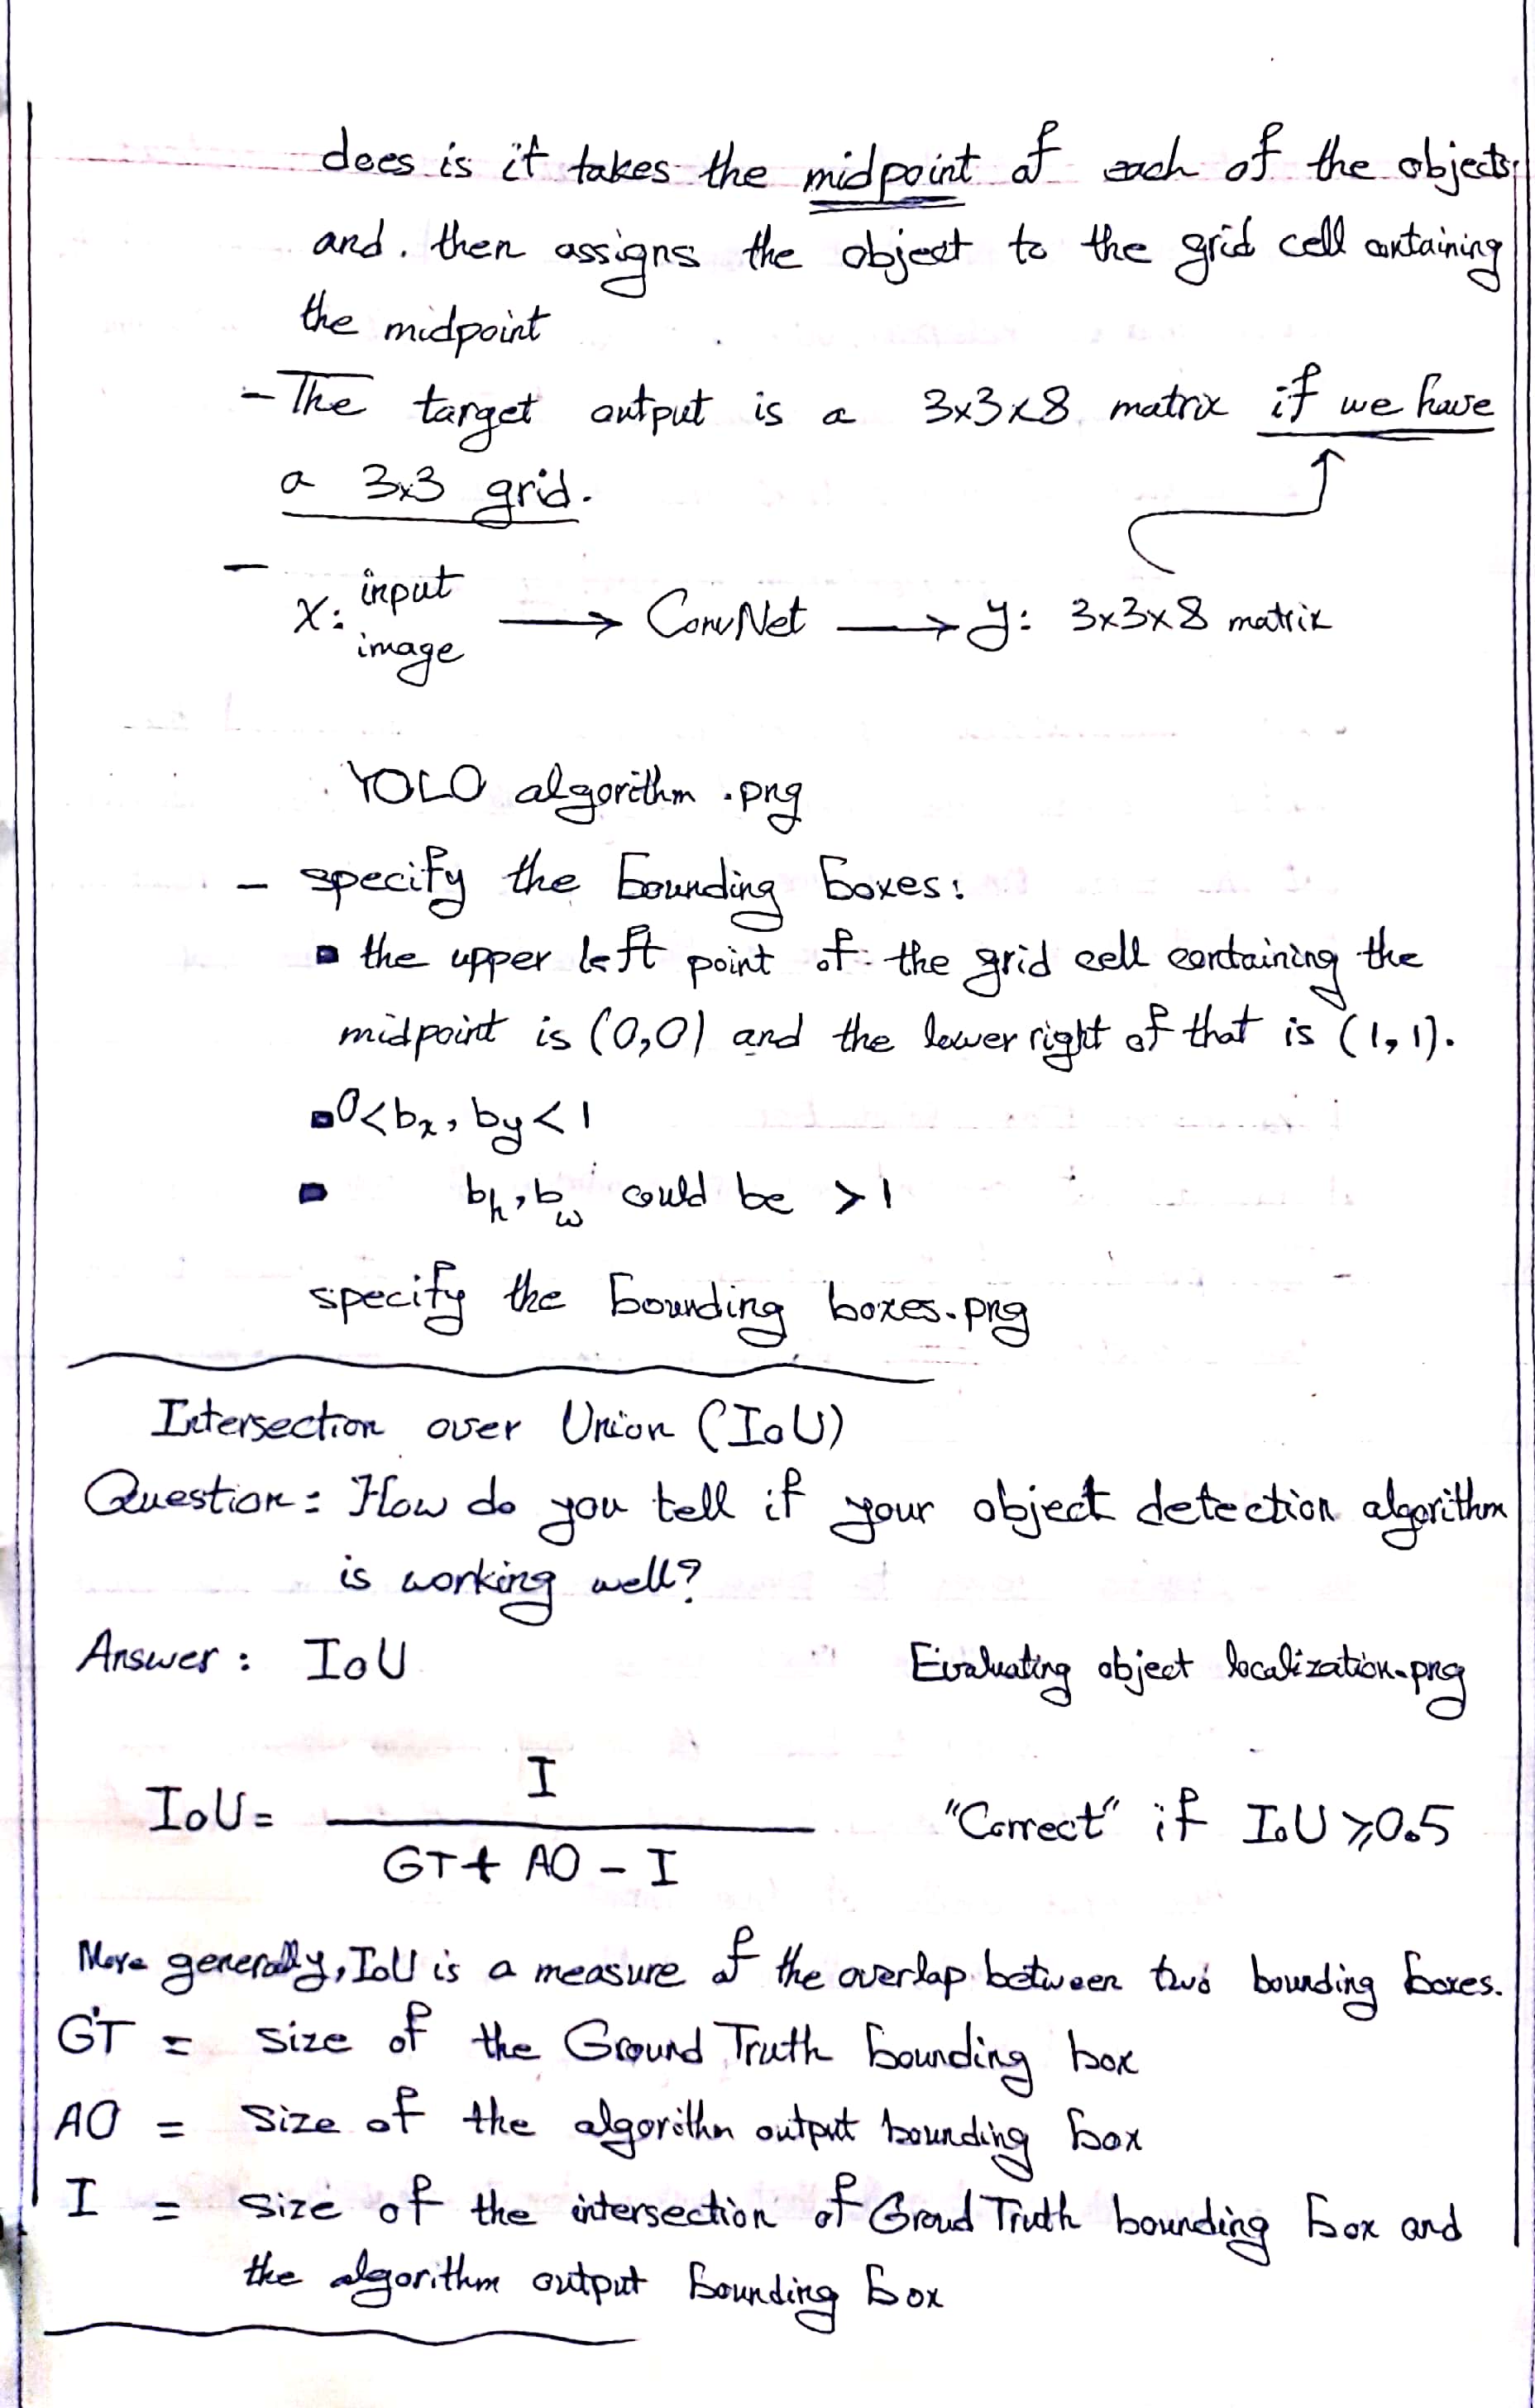 does is it takes the midpoint of each of the objects
and then assigns the object to the grid cell containing
the midpoint
- The target output is a 3x3x8 matrix if we have
a 3x3 grid.
- X: input image → ConvNet → y: 3x3x8 matrix
YOLO algorithm.png
- specify the bounding boxes:
▪ the upper left point of the grid cell containing the
midpoint is (0,0) and the lower right of that is (1,1).
▪ 0<bx, by<1
▪ bh, bw could be >1
specify the bounding boxes.png
Intersection over Union (IoU)
Question: How do you tell if your object detection algorithm
is working well?
Answer: IoU Evaluating object localization.png
IoU = I / (GT + AO - I) "Correct" if IoU ⩾ 0.5
More generally, IoU is a measure of the overlap between two bounding boxes.
GT = size of the Ground Truth bounding box
AO = size of the algorithm output bounding box
I = size of the intersection of Groud Truth bounding box and
the algorithm output bounding box